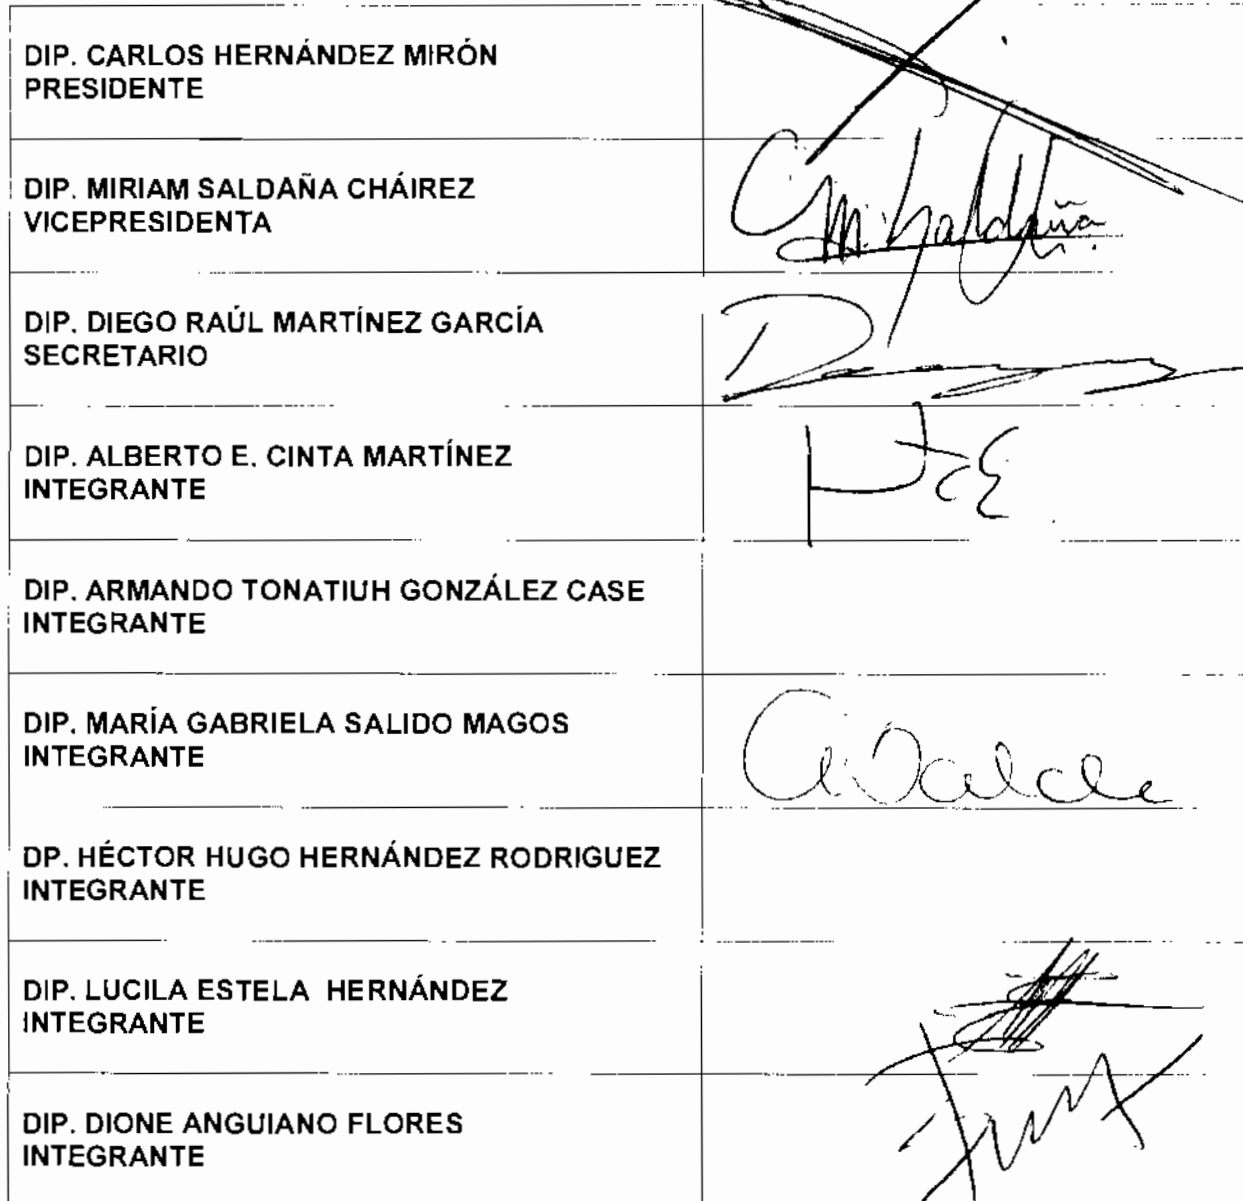 DIP. CARLOS HERNÁNDEZ MIRÓN
PRESIDENTE
DIP. MIRIAM SALDAÑA CHÁIREZ
VICEPRESIDENTA
M. Saldaña
DIP. DIEGO RAÚL MARTÍNEZ GARCÍA
SECRETARIO
DIP. ALBERTO E. CINTA MARTÍNEZ
INTEGRANTE
DIP. ARMANDO TONATIUH GONZÁLEZ CASE
INTEGRANTE
DIP. MARÍA GABRIELA SALIDO MAGOS
INTEGRANTE
DP. HÉCTOR HUGO HERNÁNDEZ RODRIGUEZ
INTEGRANTE
DIP. LUCILA ESTELA HERNÁNDEZ
INTEGRANTE
DIP. DIONE ANGUIANO FLORES
INTEGRANTE